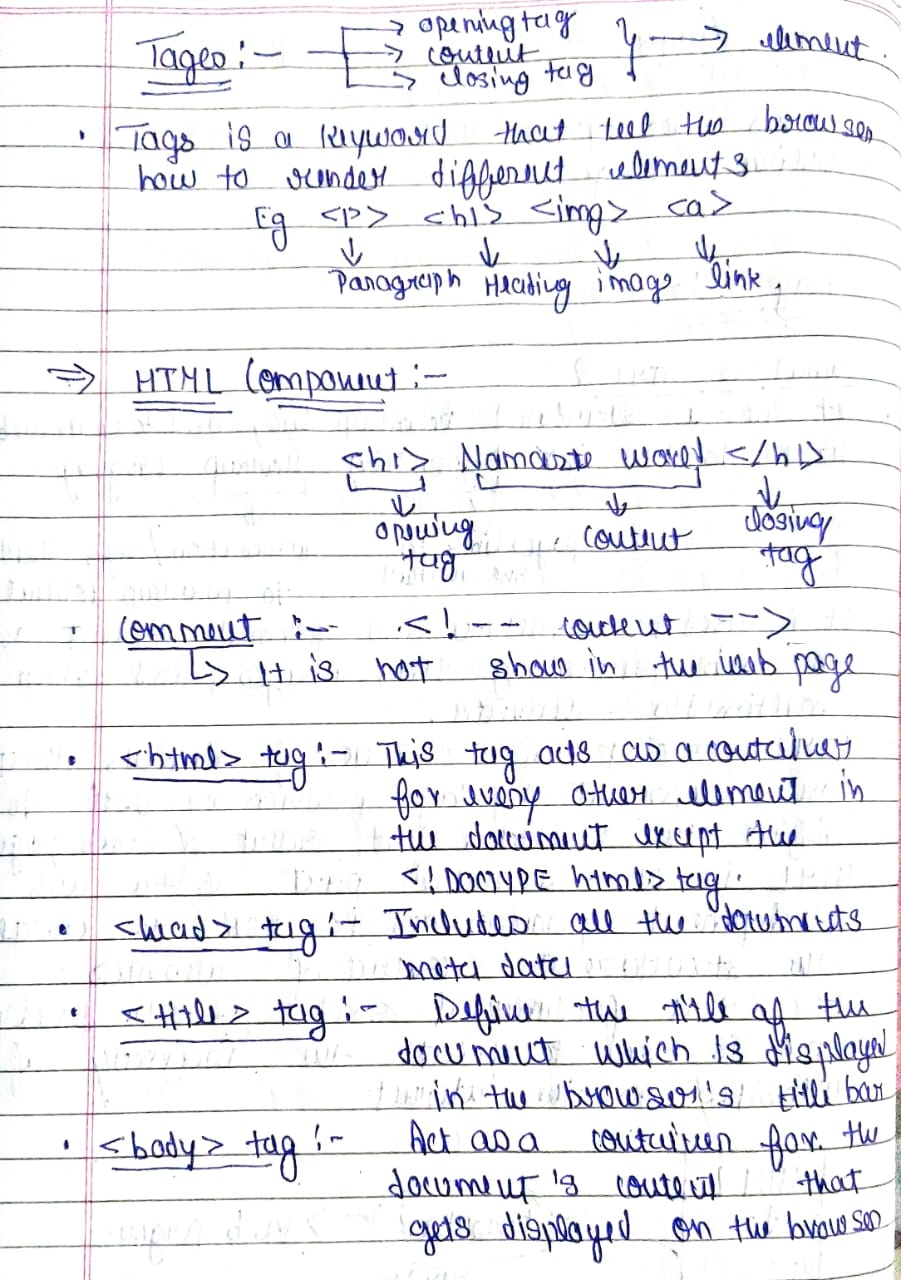 Tages :- → opening tag } → element.
→ content
→ closing tag
• Tags is a keyword that tell the browser
how to render different elements
Eg <P> <h1> <img> <a>
↓ ↓ ↓ ↓
Paragraph Heading image link,
⇒ HTML Component :-
<h1> Namaste world </h1>
↓ ↓ ↓
opening tag content closing tag
• Comment :-- <!-- content -->
↳ It is not show in the web page
• <html> tag :- This tag acts as a container
for every other element in
the document except the
<!DOCTYPE html> tag.
• <head> tag :- Includes all the documents
meta data
• <title> tag :- Define the title of the
document which is displayed
in the browser's title bar
• <body> tag :- Act as a container for the
document's content that
gets displayed on the browser